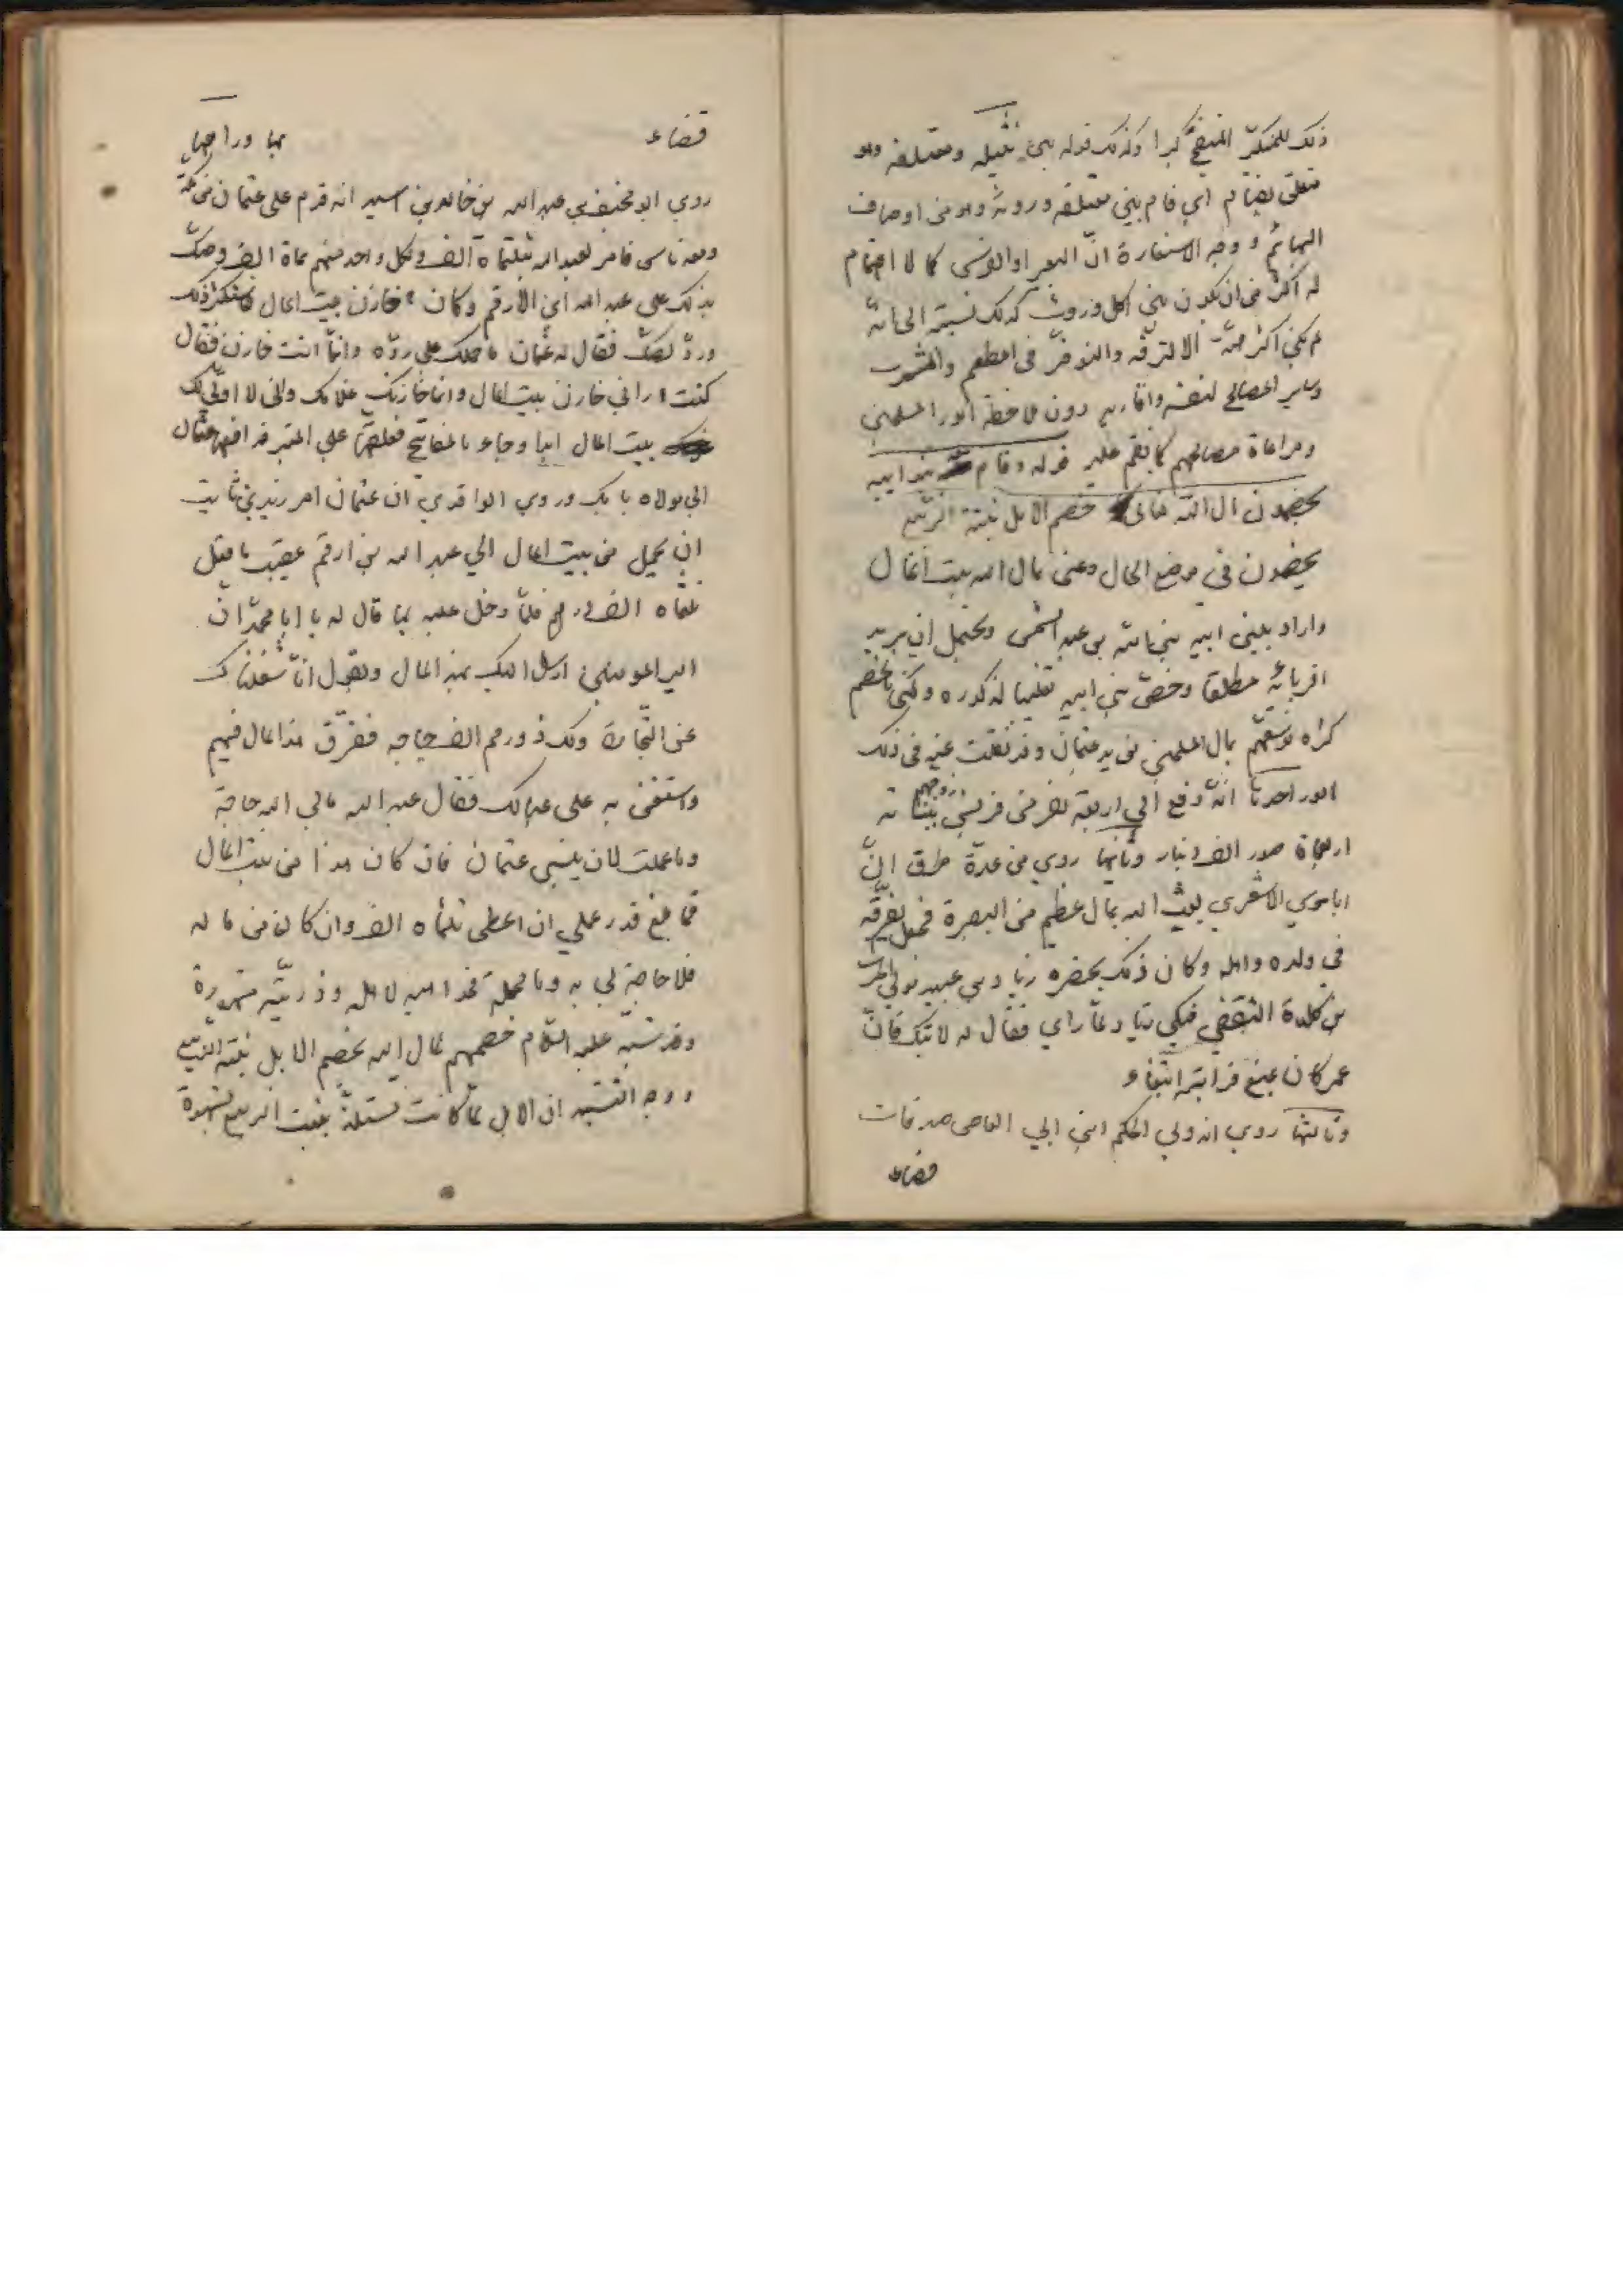 ذلك للمتكبّر المنتفج كبرا وكذلك قوله بين نثيله ومعتلفه وهو
متعلق بقام اي قام بين معتلفه وروثه وهو من اوصاف
البهائم ووجه الاستعارة انّ البعير او الفرس كما لا اهتمام
له اكثر من ان يكون بين اكل وروث كذلك نسبته الى انّه
لم يكن اكثر همّه الا الترفّه والتوفّر في المطعم والمشرب
وساير المصالح لنفسه واقاربه دون ملاحظة امور المسلمين
ومراعاة مصالحهم كما نقم عليه قوله وقام بنو ابيه
يخضمون مال اللّه تعالى خضم الابل نبتة الرّبيع
يخضمون في موضع الحال وعنى بمال الله بيت المال
واراد ببني ابيه بني اميّة بن عبد الشمس ويحتمل ان يريد
اقربائه مطلقا وخصّ بني ابيه تغليبا لذكوره وكنّى بالخضم
كثرة توسّعهم بمال المسلمين من يد عثمان وقد نقلت عنه في ذلك
امور احدها انّه دفع الى اربعة نفر من قريش زوجهم بناته
اربعماة صدر الف دينار وثانيها روي من عدّة طرق انّ
ابا موسي الاشعري بعث اليه بمال عظيم من البصرة فجعل يفرّقه
في ولده واهله وكان ذلك بحضره زياد بن عبيد مولى الحرث
بن كلدة الثقفي فبكى زياد لمّا راي فقال له لا تبك فانّ
عمر كان يمنع قرابته ابتغاء
وثالثها روي انه ولي الحكم ابن ابي العاص صدقات
قضاعه
قضاعه بها وراجها
روي ابو مخنف بن عبد الله بن خالد بن اسيد انه قدم على عثمان من مكّة
ومعه ناس فامر لعبد الله بثلثماة الف ولكل واحد منهم بماة الف وصكّ
بذلك على عبد الله ابن الارقم وكان خازن بيت المال فاستكثر ذلك
وردّ الصكّ فقال له عثمان ما حملك على ردّه وانّما انت خازن فقال
كنت اراني خازن بيت المال وانما خازنك غلامك والله لا اولّي لك
بيت المال ابدا وجاء بالمفاتيح فعلّقها على المنبر فدافعها عثمان
الي مولاه بابك وروي الواقدي ان عثمان امر زيد بن ثابت
ان يحمل من بيت المال الي عبد الله بن ارقم عقيب ما فعل
ثلثماه الف درهم فلمّا دخل عليه بها قال له يا ابا محمّد انّ
امير المومنين ارسل اليك بهذ المال ويقول انّا شغلناك
عن التّجارة ولك ذو رحم الف حاجه ففرّق هذا المال فيهم
واستغن به على عيالك فقال عبد الله مالي اليه حاجة
وما عملت لان يثيبني عثمان فان كان هذا من بيت المال
فما بلغ قدر عملي ان اعطى ثلثماه الف وان كان من ماله
فلا حاجة لي به وبالجملة فمواهبه لاهله وذريّته مشهورة
وقد شبّه عليه السّلام خضمهم لمال الله بخضم الابل نبتة الرّبيع
ووجه التشبيه ان الابل لمّا كانت تستلذّ بنبت الربيع بشهوة